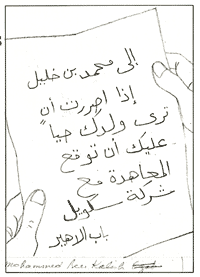 إلى محمد بن خليل
إذا اصررت أن
ترى ولدك حياً
عليك أن توقع
المعاهدة مع
شركة سكويل
باب الاحمر
mohammed Ben Kalish